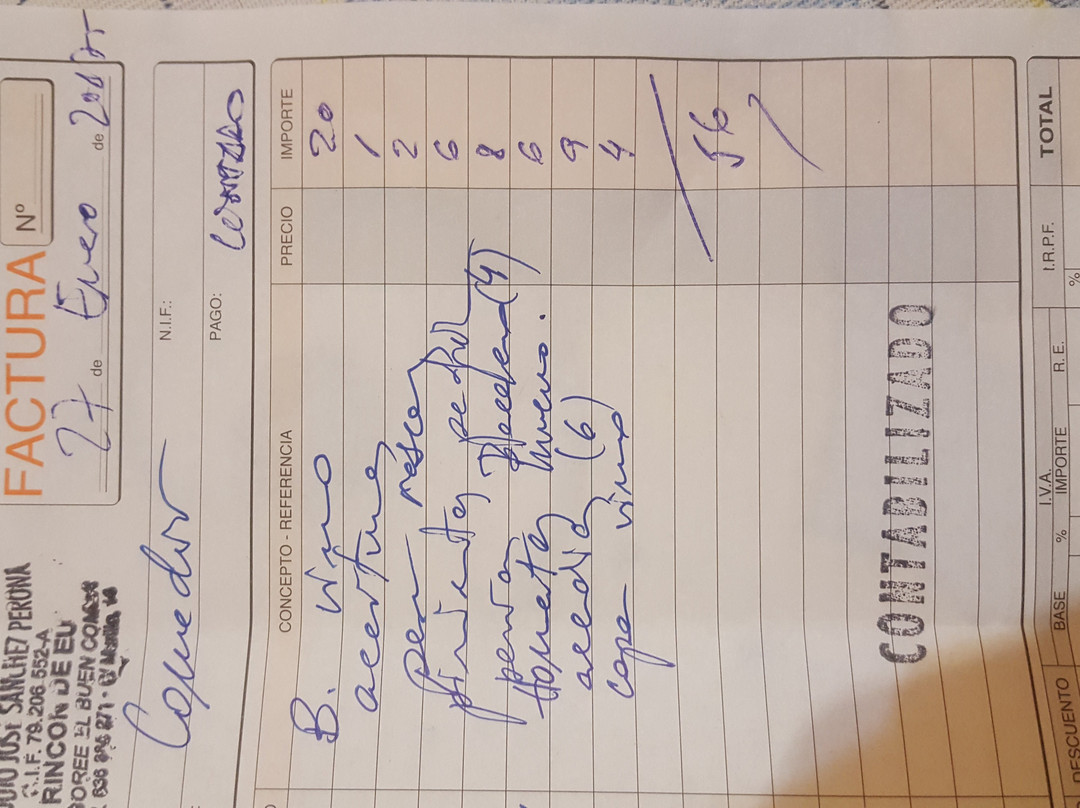 JOSE SANCHEZ PERONA
N.I.F. 79.206.552-A
RINCON DE EU
EL BUEN COMER
FACTURA Nº
27 de Enero de
Comedor
N.I.F.:
PAGO: CONTADO
CONCEPTO - REFERENCIA PRECIO IMPORTE
B. vino 20
aceitunas 1
pan 2
pimientos 6
(4) 8
tomates huevo. 6
acedias (6) 9
copa vino 4
56
CONTABILIZADO
DESCUENTO BASE I.V.A. % IMPORTE R.E. I.R.P.F. % TOTAL